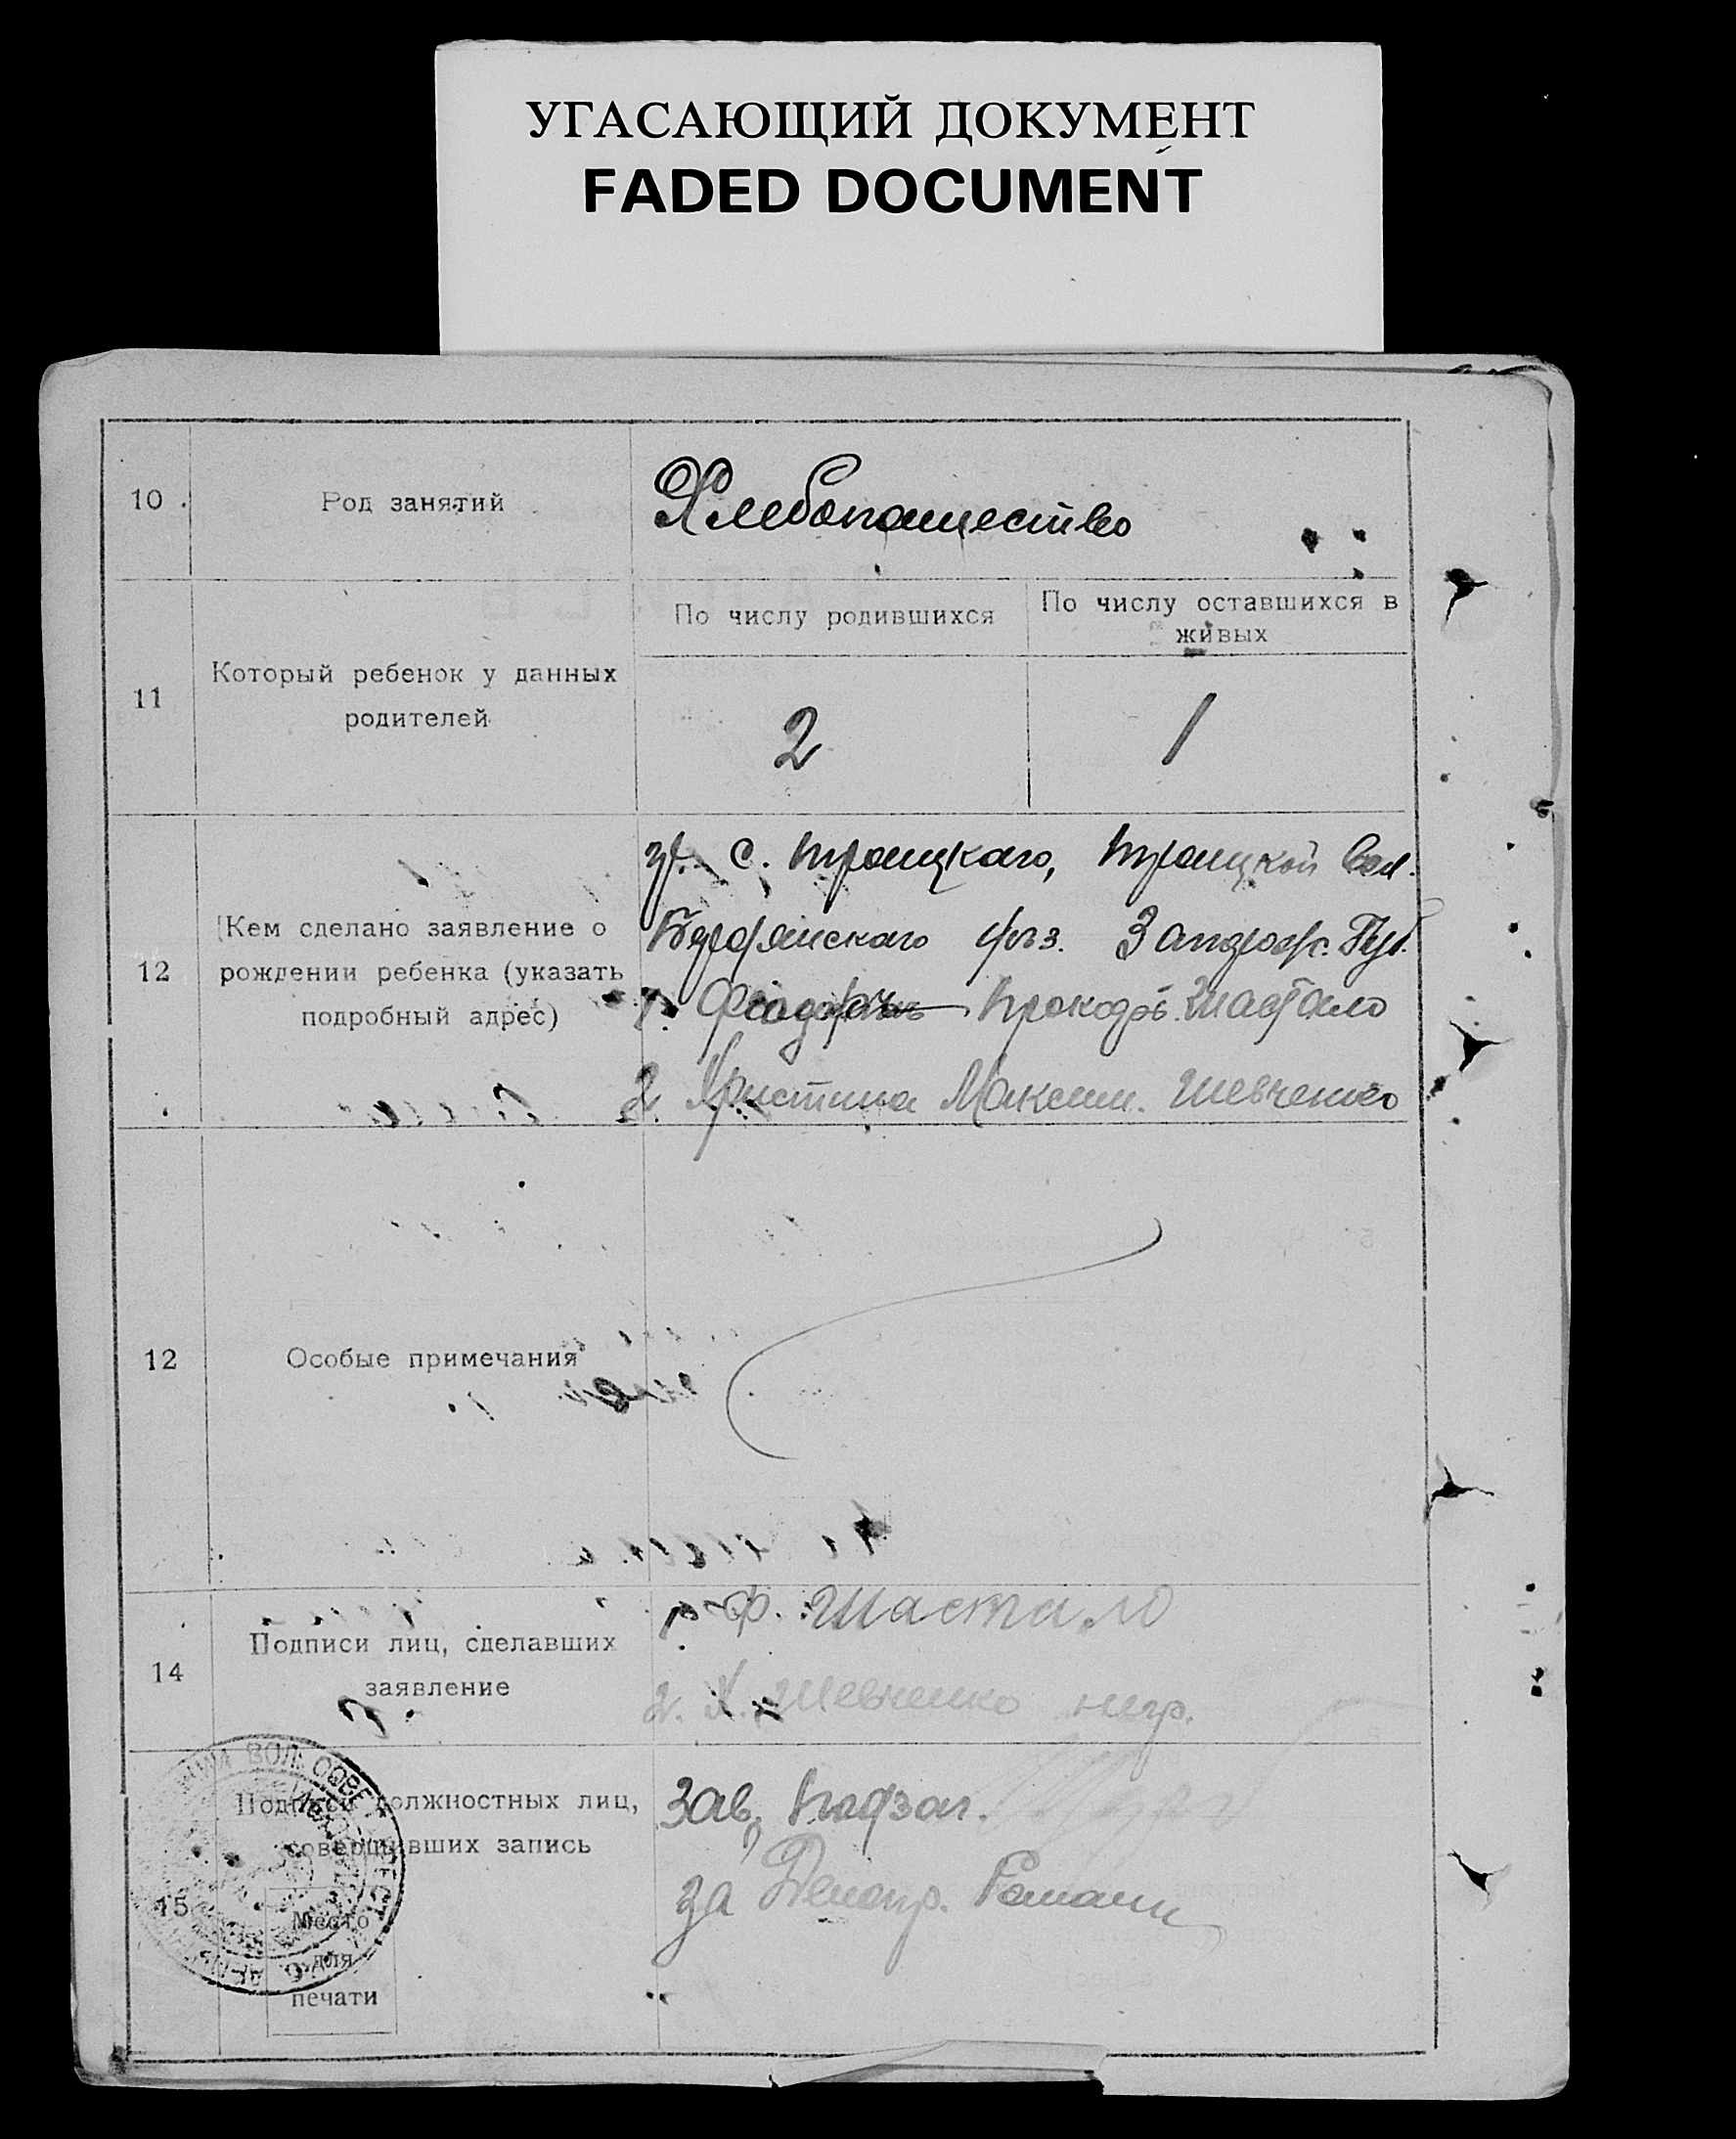 УГАСАЮЩИЙ ДОКУМЕНТ
FADED DOCUMENT
10. Род занятий
Хлебопашество
11 Который ребенок у данных
родителей
По числу родившихся
По числу оставшихся в
живых
2
1
12 Кем сделано заявление о
рождении ребенка (указать
подробный адрес)
гр. с. Троицкаго, Троицкой Вол.
Бердянскаго уез. Запорож. Губ.
1. Шастало
2. Христина Максим. Шевченко
12 Особые примечания
14 Подписи лиц, сделавших
заявление
1. Ф. Шастало
2. Х. Шевченко негр.
15 Подписи должностных лиц,
совершивших запись
Место
для
печати
Зав. Подзаг.
за Делопр.